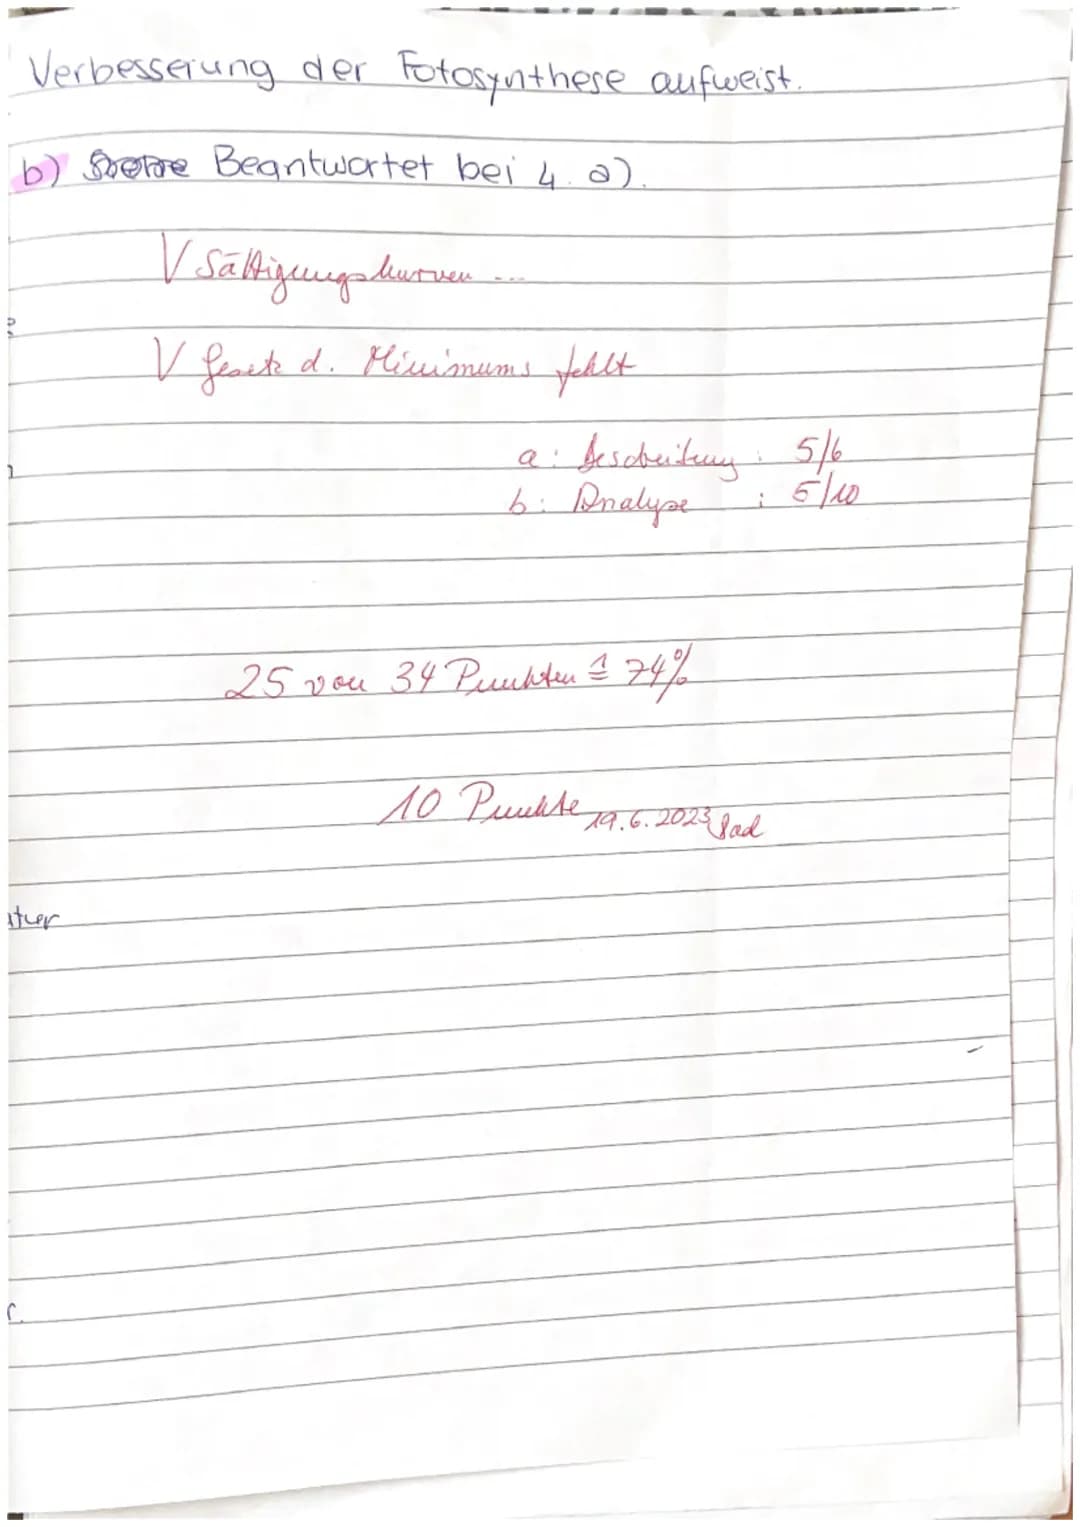 Verbesserung der Fotosynthese aufweist.
b) Beantwortet bei 4. a).
V Sättigungskurven ...
V Gesetz d. Minimums fehlt
a: Beschreibung : 5/6
b: Analyse : 5/10
25 von 34 Punkten ≙ 74%
10 Punkte 19.6.2023